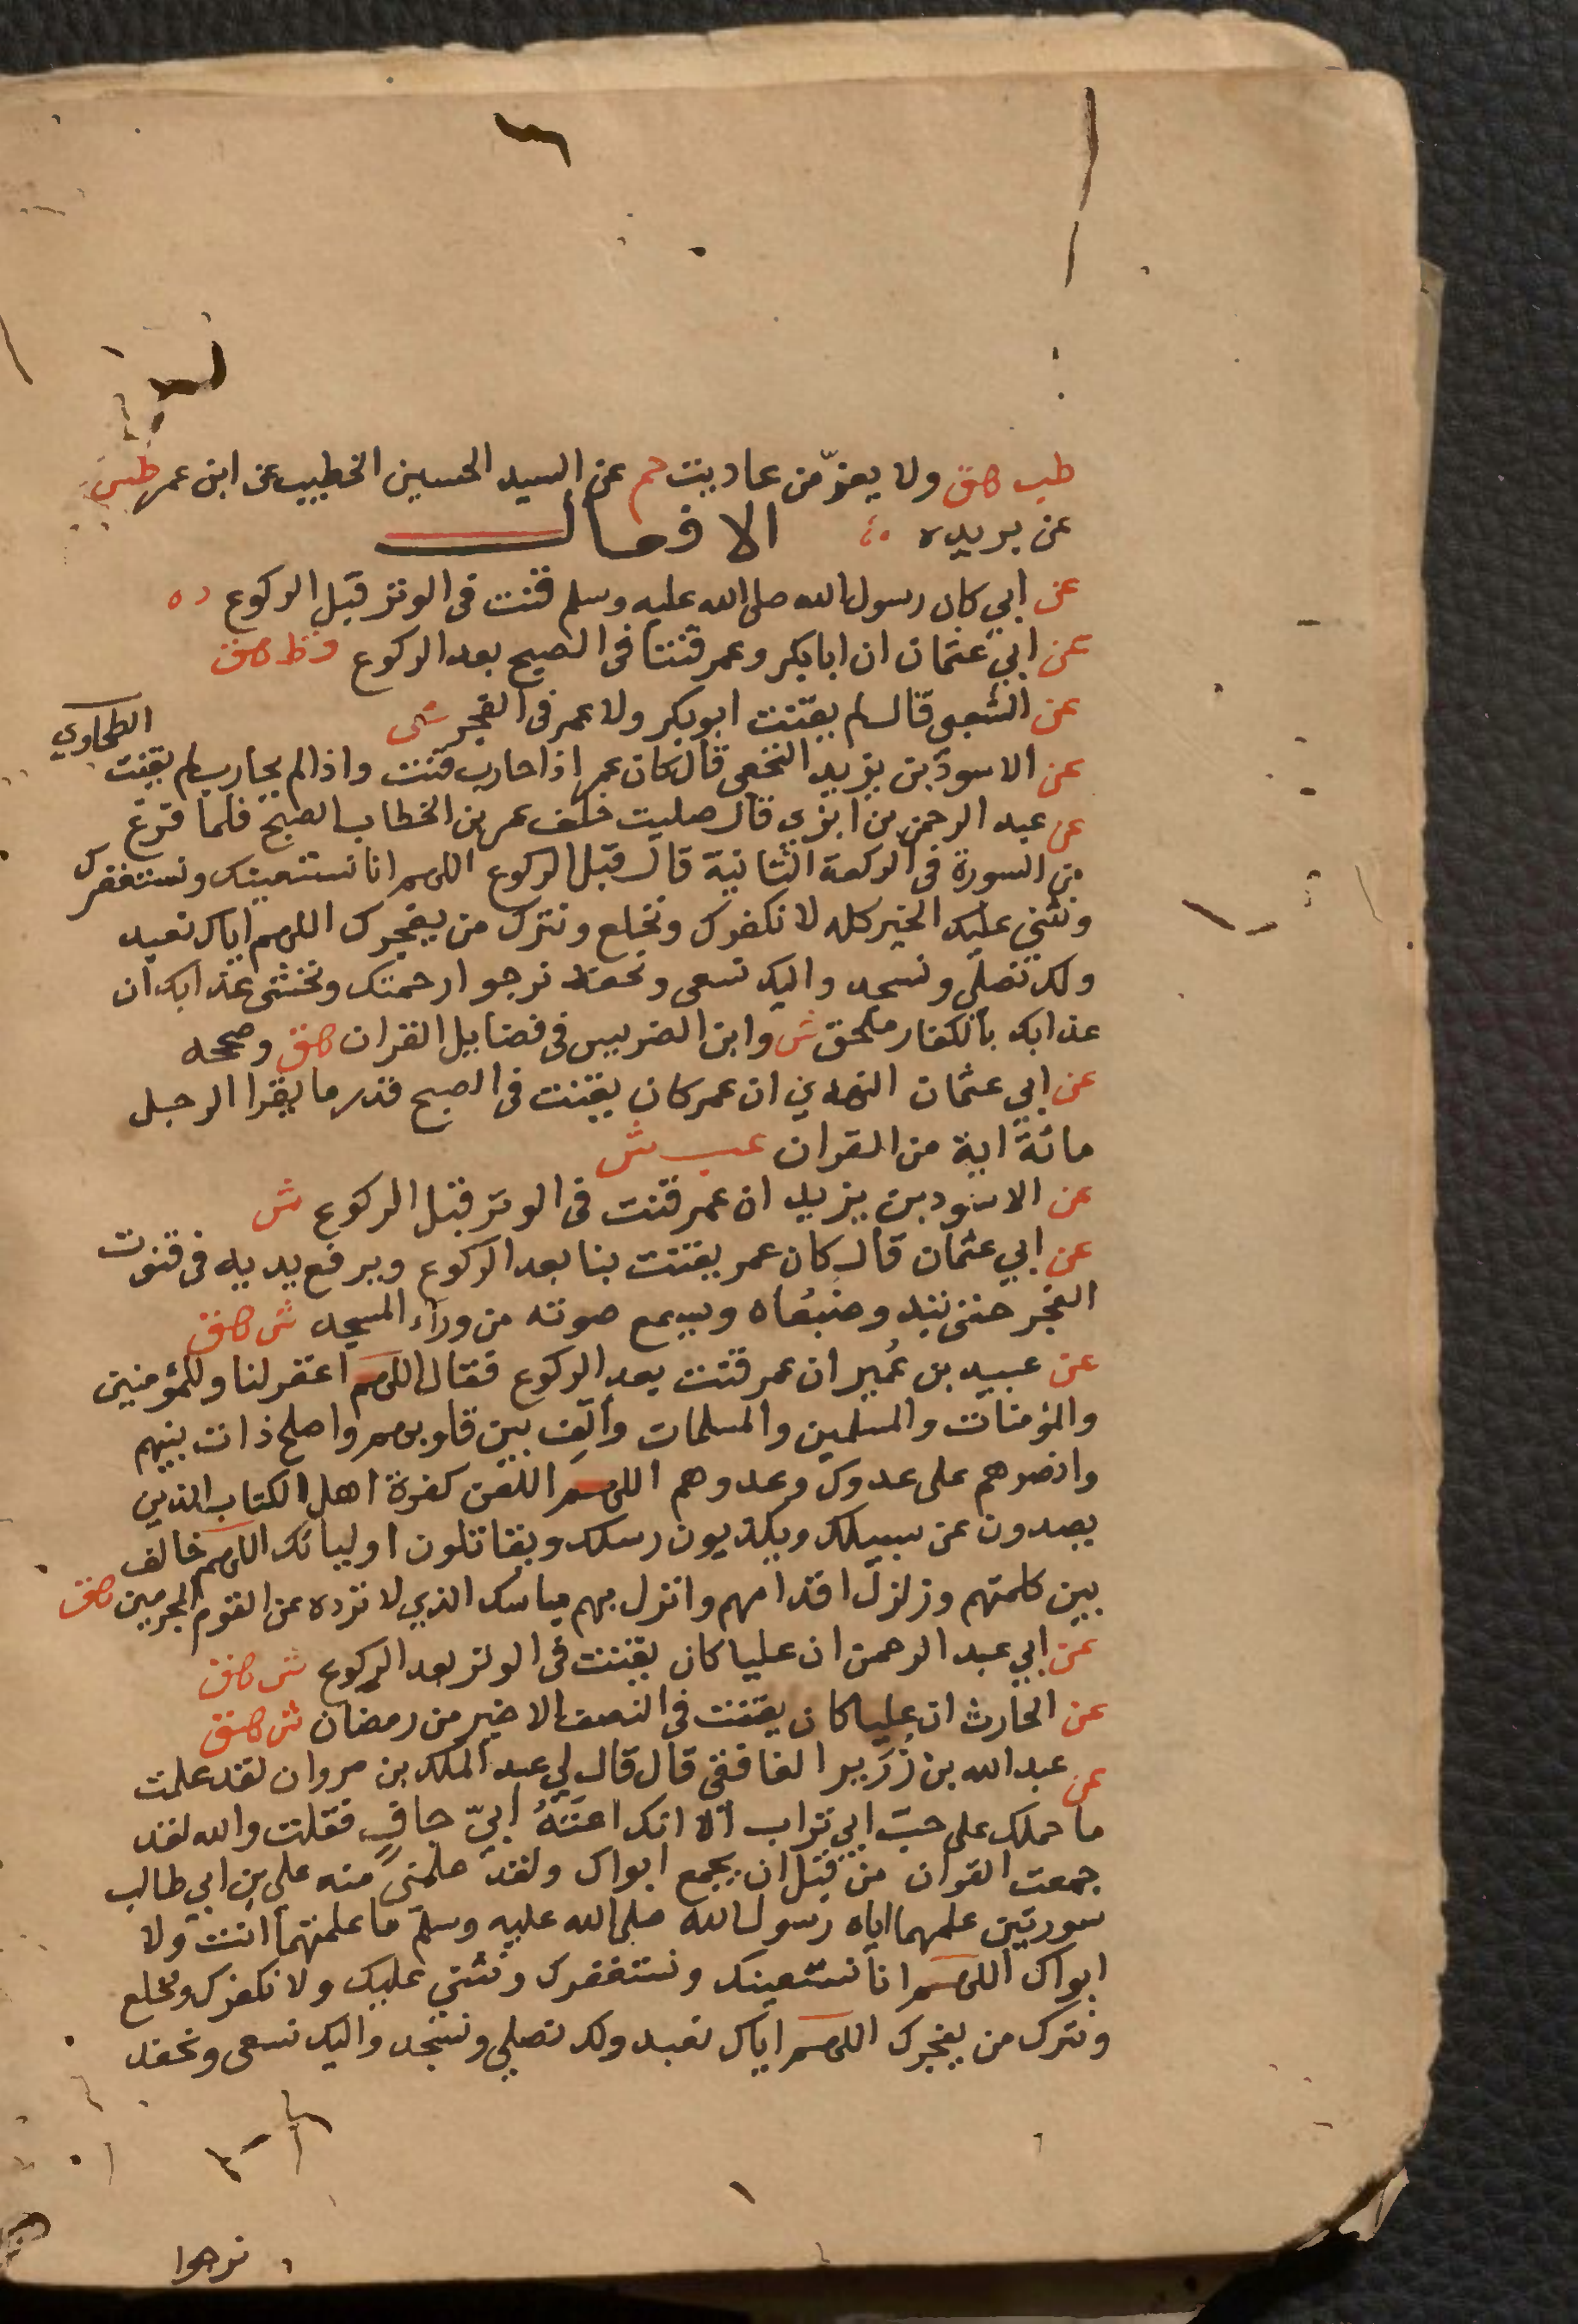 طب هق ولا يعزّ من عاديت حم عن السيد الحسين الخطيب عن ابن عمر طس
عن بريده الافعال
عن ابي كان رسول الله صلى الله عليه وسلم قنت فى الوتر قبل الركوع ده
عن ابي عثمان ان ابا بكر وعمر قنتا فى الصبح بعد الركوع قط هق
عن الشعبي قال لم يقنت ابو بكر ولا عمر فى الفجر ش
عن الاسود بن يزيد النخعي قال كان عمر اذا حارب قنت واذا لم يحارب لم يقنت الطحاوي
عن عبد الرحمن بن ابزي قال صليت خلف عمر بن الخطاب الصبح فلما فرغ
من السورة فى الركعة الثانية قال قبل الركوع اللهم انا نستعينك ونستغفرك
ونثني عليك الخير كله لا نكفرك ونخلع ونترك من يفجرك اللهم اياك نعبد
ولك نصلي ونسجد واليك نسعى ونحفد نرجوا رحمتك ونخشى عذابك ان
عذابك بالكفار ملحق ش وابن الضريس فى فضايل القران هق وصححه
عن ابي عثمان النهدي ان عمر كان يقنت فى الصبح قدر ما يقرا الرجل
مائة اية من القران عب ش
عن الاسود بن يزيد ان عمر قنت فى الوتر قبل الركوع ش
عن ابي عثمان قال كان عمر يقنت بنا بعد الركوع ويرفع يديه فى قنوت
الفجر حتى تبد وضبعاه ويسمع صوته من وراء المسجد ش هق
عن عبيد بن عُمير ان عمر قنت بعد الركوع فقال اللهم اغفر لنا وللمؤمنين
والمؤمنات والمسلمين والمسلمات وألّف بين قلوبهم واصلح ذات بينهم
وانصرهم على عدوك وعدوهم اللهم العن كفرة اهل الكتاب الذين
يصدون عن سبيلك ويكذبون رسلك ويقاتلون اوليائك اللهم خالف
بين كلمتهم وزلزل اقدامهم وانزل بهم باسك الذي لا ترده عن القوم المجرمين هق
عن ابي عبد الرحمن ان عليا كان يقنت فى الوتر بعد الركوع ش هق
عن الحارث ان عليا كان يقنت فى النصف الاخير من رمضان ش هق
عن عبد الله بن زُرَير الغافقي قال قال لي عبد الملك بن مروان لقد علمت
ما حملك على حبّ ابي تراب الا انك اعرابيّ جافٍ فقلت والله لقد
جمعت القران من قبل ان يجمع ابواك ولقد علمنى منه علي بن ابي طالب
سورتين علمهما اياه رسول الله صلى الله عليه وسلم ما علمتهما انت ولا
ابواك اللهم انا نستعينك ونستغفرك ونثني عليك ولا نكفرك ونخلع
ونترك من يفجرك اللهم اياك نعبد ولك نصلي ونسجد واليك نسعى ونحفد
نرجوا